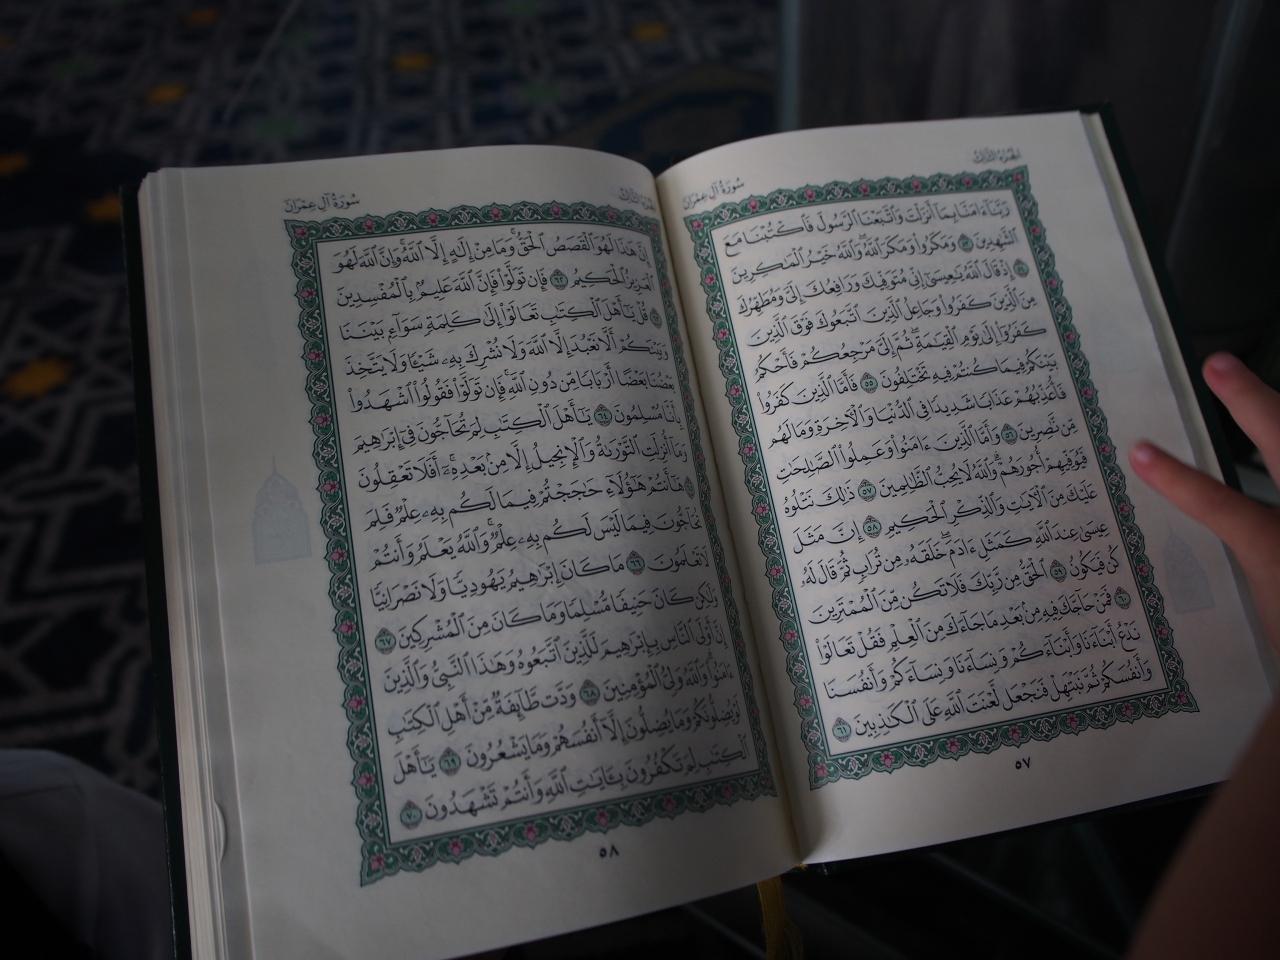 الجزء الثالث
سورة آل عمران
رَبَّنَآ ءَامَنَّا بِمَآ أَنزَلْتَ وَٱتَّبَعْنَا ٱلرَّسُولَ فَٱكْتُبْنَا مَعَ
ٱلشَّٰهِدِينَ ٥٣ وَمَكَرُوا۟ وَمَكَرَ ٱللَّهُ وَٱللَّهُ خَيْرُ ٱلْمَٰكِرِينَ
٥٤ إِذْ قَالَ ٱللَّهُ يَٰعِيسَىٰٓ إِنِّى مُتَوَفِّيكَ وَرَافِعُكَ إِلَىَّ وَمُطَهِّرُكَ
مِنَ ٱلَّذِينَ كَفَرُوا۟ وَجَاعِلُ ٱلَّذِينَ ٱتَّبَعُوكَ فَوْقَ ٱلَّذِينَ
كَفَرُوٓا۟ إِلَىٰ يَوْمِ ٱلْقِيَٰمَةِ ثُمَّ إِلَىَّ مَرْجِعُكُمْ فَأَحْكُمُ
بَيْنَكُمْ فِيمَا كُنتُمْ فِيهِ تَخْتَلِفُونَ ٥٥ فَأَمَّا ٱلَّذِينَ كَفَرُوا۟
فَأُعَذِّبُهُمْ عَذَابًا شَدِيدًا فِى ٱلدُّنْيَا وَٱلْءَاخِرَةِ وَمَا لَهُم
مِّن نَّٰصِرِينَ ٥٦ وَأَمَّا ٱلَّذِينَ ءَامَنُوا۟ وَعَمِلُوا۟ ٱلصَّٰلِحَٰتِ
فَيُوَفِّيهِمْ أُجُورَهُمْ وَٱللَّهُ لَا يُحِبُّ ٱلظَّٰلِمِينَ ٥٧ ذَٰلِكَ نَتْلُوهُ
عَلَيْكَ مِنَ ٱلْءَايَٰتِ وَٱلذِّكْرِ ٱلْحَكِيمِ ٥٨ إِنَّ مَثَلَ
عِيسَىٰ عِندَ ٱللَّهِ كَمَثَلِ ءَادَمَ خَلَقَهُۥ مِن تُرَابٍ ثُمَّ قَالَ لَهُۥ
كُن فَيَكُونُ ٥٩ ٱلْحَقُّ مِن رَّبِّكَ فَلَا تَكُن مِّنَ ٱلْمُمْتَرِينَ
٦٠ فَمَنْ حَآجَّكَ فِيهِ مِنۢ بَعْدِ مَا جَآءَكَ مِنَ ٱلْعِلْمِ فَقُلْ تَعَالَوْا۟
نَدْعُ أَبْنَآءَنَا وَأَبْنَآءَكُمْ وَنِسَآءَنَا وَنِسَآءَكُمْ وَأَنفُسَنَا
وَأَنفُسَكُمْ ثُمَّ نَبْتَهِلْ فَنَجْعَل لَّعْنَتَ ٱللَّهِ عَلَى ٱلْكَٰذِبِينَ ٦١
٥٧
الجزء الثالث
سورة آل عمران
إِنَّ هَٰذَا لَهُوَ ٱلْقَصَصُ ٱلْحَقُّ وَمَا مِنْ إِلَٰهٍ إِلَّا ٱللَّهُ وَإِنَّ ٱللَّهَ لَهُوَ
ٱلْعَزِيزُ ٱلْحَكِيمُ ٦٢ فَإِن تَوَلَّوْا۟ فَإِنَّ ٱللَّهَ عَلِيمٌۢ بِٱلْمُفْسِدِينَ
٦٣ قُلْ يَٰٓأَهْلَ ٱلْكِتَٰبِ تَعَالَوْا۟ إِلَىٰ كَلِمَةٍ سَوَآءٍۭ بَيْنَنَا
وَبَيْنَكُمْ أَلَّا نَعْبُدَ إِلَّا ٱللَّهَ وَلَا نُشْرِكَ بِهِۦ شَيْـًٔا وَلَا يَتَّخِذَ
بَعْضُنَا بَعْضًا أَرْبَابًا مِّن دُونِ ٱللَّهِ فَإِن تَوَلَّوْا۟ فَقُولُوا۟ ٱشْهَدُوا۟
بِأَنَّا مُسْلِمُونَ ٦٤ يَٰٓأَهْلَ ٱلْكِتَٰبِ لِمَ تُحَآجُّونَ فِىٓ إِبْرَٰهِيمَ
وَمَآ أُنزِلَتِ ٱلتَّوْرَىٰةُ وَٱلْإِنجِيلُ إِلَّا مِنۢ بَعْدِهِۦٓ أَفَلَا تَعْقِلُونَ
٦٥ هَٰٓأَنتُمْ هَٰٓؤُلَآءِ حَٰجَجْتُمْ فِيمَا لَكُم بِهِۦ عِلْمٌ فَلِمَ
تُحَآجُّونَ فِيمَا لَيْسَ لَكُم بِهِۦ عِلْمٌ وَٱللَّهُ يَعْلَمُ وَأَنتُمْ
لَا تَعْلَمُونَ ٦٦ مَا كَانَ إِبْرَٰهِيمُ يَهُودِيًّا وَلَا نَصْرَانِيًّا
وَلَٰكِن كَانَ حَنِيفًا مُّسْلِمًا وَمَا كَانَ مِنَ ٱلْمُشْرِكِينَ ٦٧
إِنَّ أَوْلَى ٱلنَّاسِ بِإِبْرَٰهِيمَ لَلَّذِينَ ٱتَّبَعُوهُ وَهَٰذَا ٱلنَّبِىُّ وَٱلَّذِينَ
ءَامَنُوا۟ وَٱللَّهُ وَلِىُّ ٱلْمُؤْمِنِينَ ٦٨ وَدَّت طَّآئِفَةٌ مِّنْ أَهْلِ ٱلْكِتَٰبِ
لَوْ يُضِلُّونَكُمْ وَمَا يُضِلُّونَ إِلَّآ أَنفُسَهُمْ وَمَا يَشْعُرُونَ ٦٩ يَٰٓأَهْلَ
ٱلْكِتَٰبِ لِمَ تَكْفُرُونَ بِـَٔايَٰتِ ٱللَّهِ وَأَنتُمْ تَشْهَدُونَ ٧٠
٥٨